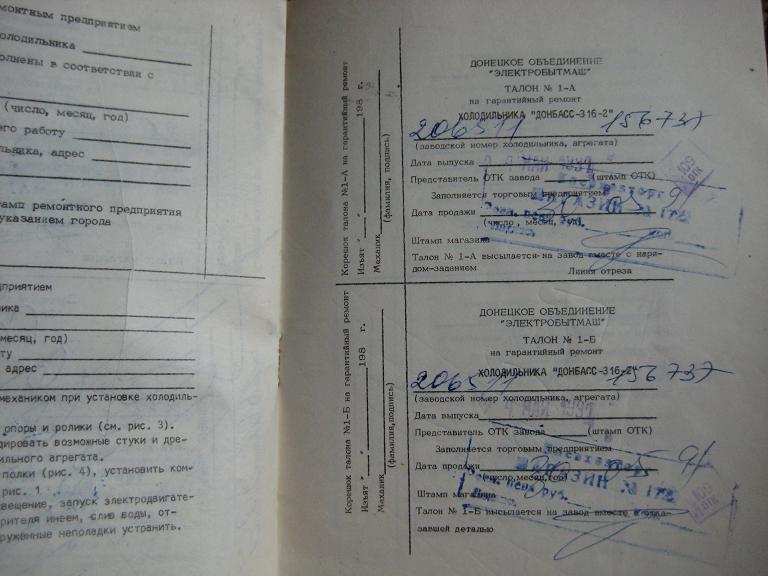 ремонтным предприятием
холодильника
полнены в соответствии с
(число, месяц, год)
его работу
льника, адрес
тамп ремонтного предприятия
указанием города
дприятием
ника
месяц, год)
ту
адрес
механиком при установке холодиль-
опоры и ролики (см. рис. 3).
дировать возможные стуки и дре-
ильного агрегата.
полки (рис. 4), установить ком-
рис. 1
вещение, запуск электродвигате-
слив воды, от-
руженные неполадки устранить.
Корешок талона №1-А на гарантийный ремонт
Изъят "__" 198 г.
Механик
(фамилия, подпись)
ДОНЕЦКОЕ ОБЪЕДИНЕНИЕ
"ЭЛЕКТРОБЫТМАШ"
ТАЛОН № 1-А
на гарантийный ремонт
ХОЛОДИЛЬНИКА "ДОНБАСС-316-2"
206511 156737
(заводской номер холодильника, агрегата)
Дата выпуска
Представитель ОТК завода (штамп ОТК)
Заполняется торговым предприятием
Дата продажи
(число, месяц, год)
Штамп магазина
Талон № 1-А высылается на завод вместе с наря-
дом-заданием
Линия отреза
МАГАЗИН № 172
Корешок талона №1-Б на гарантийный ремонт
Изъят "__" 198 г.
Механик
(фамилия, подпись)
ДОНЕЦКОЕ ОБЪЕДИНЕНИЕ
"ЭЛЕКТРОБЫТМАШ"
ТАЛОН № 1-Б
на гарантийный ремонт
ХОЛОДИЛЬНИКА "ДОНБАСС-316-2"
206511 156737
(заводской номер холодильника, агрегата)
Дата выпуска
Представитель ОТК завода (штамп ОТК)
Заполняется торговым предприятием
Дата продажи
(число, месяц, год)
Штамп магазина
Талон № 1-Б высылается на завод вместе с отка-
завшей деталью
МАГАЗИН № 172